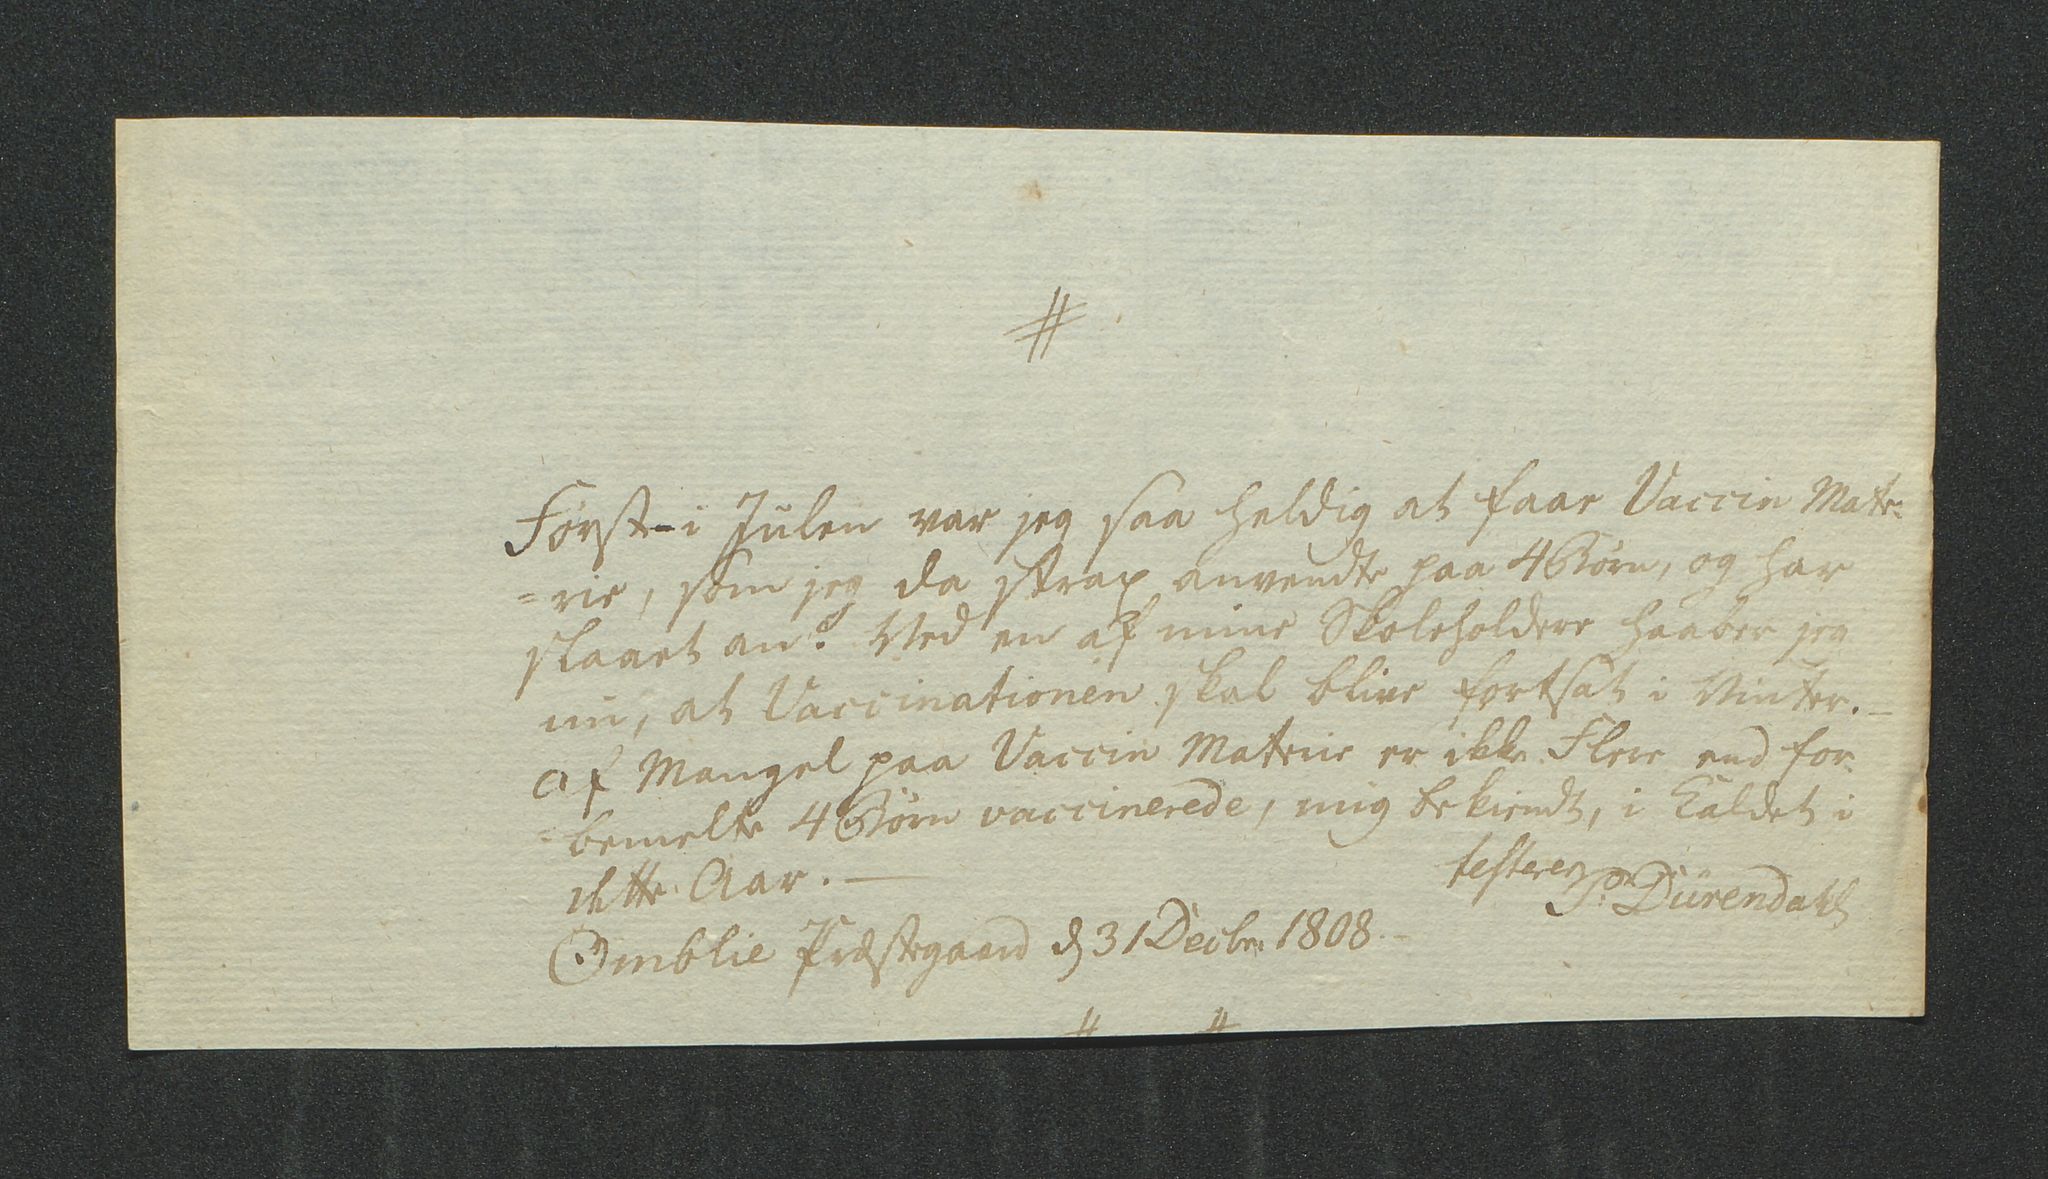 #
Først i Julen var jeg saa heldig at faae Vaccin Mate-
=rie, som jeg da strax anvendte paa 4 Børn, og har
slaaet an. Ved en af mine Skoleholdere haaber jeg
nu, at Vaccinationen skal blive fortsat i Vinter. —
Af Mangel paa Vaccin Materie er ikke Flere end for-
=bemelte 4 Børn vaccinerede, mig bekiendt, i Kaldet i
dette Aar. —
testerer
P. Dürendahl
Omblie Præstegaard d 31 Decbr. 1808. —
# #